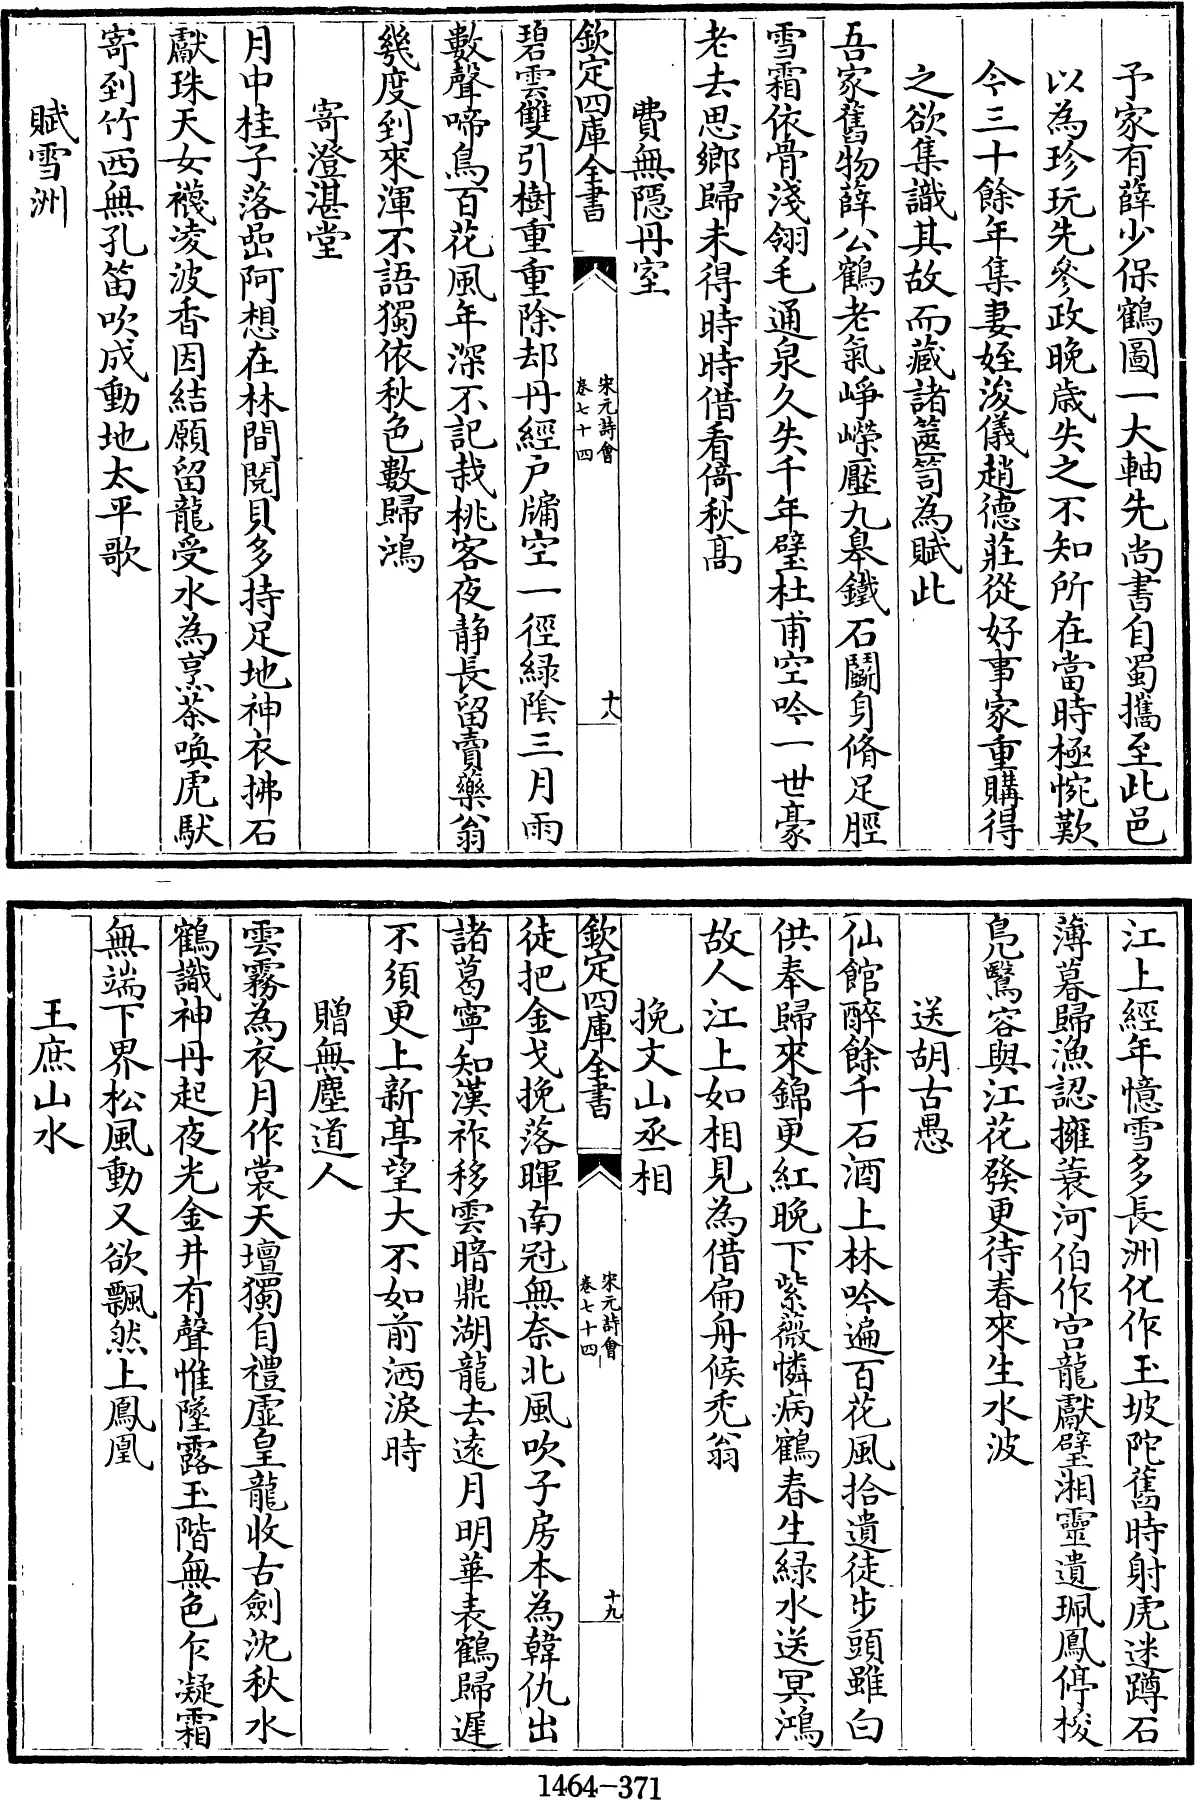 予家有薛少保鶴圖一大軸先尚書自蜀攜至此邑
以為珍玩先參政晚歲失之不知所在當時極惋歎
今三十餘年集妻姪浚儀趙德莊從好事家重購得
之欲集識其故而藏諸篋笥為賦此
吾家舊物薛公鶴老氣崢嶸壓九皋鐵石鬭身脩足脛
雪霜依骨淺翎毛通泉久失千年璧杜甫空吟一世豪
老去思鄉歸未得時時借看倚秋高
費無隱丹室
欽定四庫全書
宋元詩會
卷七十四
十八
碧雲雙引樹重重除却丹經户牖空一徑緑陰三月雨
數聲啼鳥百花風年深不記栽桃客夜静長留賣藥翁
幾度到來渾不語獨依秋色數歸鴻
寄澄湛堂
月中桂子落嵒阿想在林間閲貝多持足地神衣拂石
獻珠天女襪凌波香因結願留龍受水為烹茶喚虎馱
寄到竹西無孔笛吹成動地太平歌
賦雪洲
江上經年憶雪多長洲化作玉坡陀舊時射虎迷蹲石
薄暮歸漁認擁蓑河伯作宫龍獻璧湘靈遺珮鳳停梭
鳬鷖容與江花發更待春來生水波
送胡古愚
仙館醉餘千石酒上林吟遍百花風拾遺徒步頭雖白
供奉歸來錦更紅晚下紫薇憐病鶴春生緑水送冥鴻
故人江上如相見為借扁舟候秃翁
挽文山丞相
欽定四庫全書
宋元詩會
卷七十四
十九
徒把金戈挽落暉南冠無奈北風吹子房本為韓仇出
諸葛寧知漢祚移雲暗鼎湖龍去遠月明華表鶴歸遲
不須更上新亭望大不如前洒淚時
贈無塵道人
雲霧為衣月作裳天壇獨自禮虚皇龍收古劍沈秋水
鶴識神丹起夜光金井有聲惟墜露玉階無色乍凝霜
無端下界松風動又欲飄然上鳳凰
王庶山水
1464-371